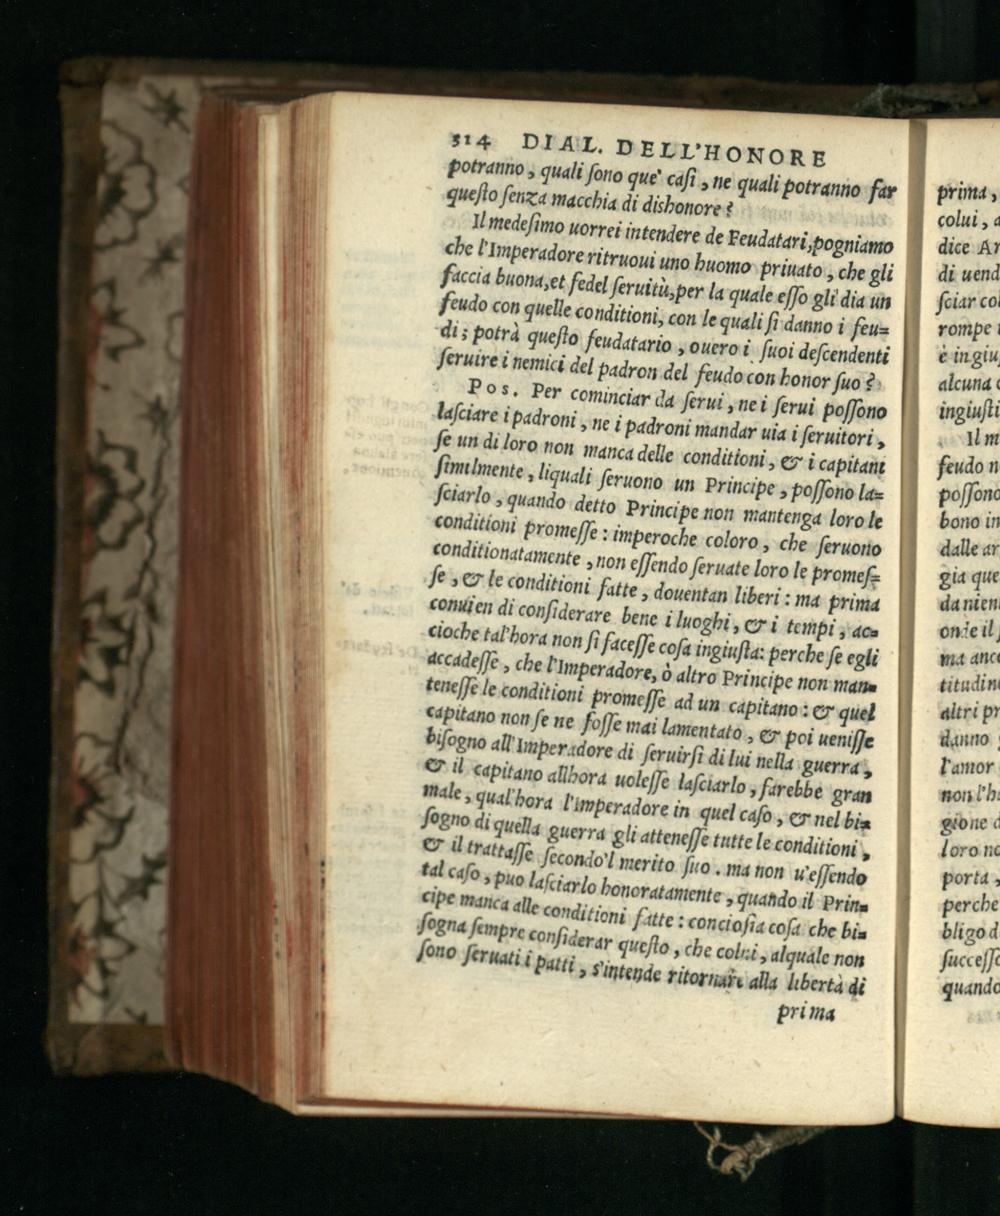 314 DIAL. DELL'HONORE
potranno, quali ſono que' caſi, ne quali potranno far
queſto ſenza macchia di dishonore?
Il medeſimo uorrei intendere de Feudatari, pogniamo
che l'Imperadore ritruoui uno huomo priuato, che gli
faccia buona, et fedel ſeruitù, per la quale eſſo gli dia un
feudo con quelle conditioni, con le quali ſi danno i feu=
di; potrà queſto feudatario, ouero i ſuoi deſcendenti
ſeruire i nemici del padron del feudo con honor ſuo?
Pos. Per cominciar da ſerui, ne i ſerui poſſono
laſciare i padroni, ne i padroni mandar uia i ſeruitori,
ſe un di loro non manca delle conditioni, & i capitani
ſimilmente, liquali ſeruono un Principe, poſſono la=
ſciarlo, quando detto Principe non mantenga loro le
conditioni promeſſe: imperoche coloro, che ſeruono
conditionatamente, non eſſendo ſeruate loro le promeſ=
ſe, & le conditioni fatte, douentan liberi: ma prima
conuien di conſiderare bene i luoghi, & i tempi, ac=
cioche tal'hora non ſi faceſſe coſa ingiuſta: perche ſe egli
accadeſſe, che l'Imperadore, ò altro Principe non man=
teneſſe le conditioni promeſſe ad un capitano: & quel
capitano non ſe ne foſſe mai lamentato, & poi ueniſſe
biſogno all'Imperadore di ſeruirſi di lui nella guerra,
& il capitano allhora uoleſſe laſciarlo, farebbe gran
male, qual'hora l'imperadore in quel caſo, & nel bi=
ſogno di quella guerra gli atteneſſe tutte le conditioni,
& il trattaſſe ſecondo'l merito ſuo. ma non u'eſſendo
tal caſo, puo laſciarlo honoratamente, quando il Prin=
cipe manca alle conditioni fatte: concioſia coſa che bi=
ſogna ſempre conſiderar queſto, che colui, alquale non
ſono ſeruati i patti, s'intende ritornare alla libertà di
prima
prima,
colui, a
dice Ar
di uend
ſciar col
rompe
è ingiu
alcuna
ingiuſti
Il m
feudo n
poſſono
bono in
dalle ar
gia que
da nien
onde il
ma anco
titudine
altri pr
danno
l'amor
non l'h
gione d
loro no
porta,
perche
bligo d
ſucceſſo
quando